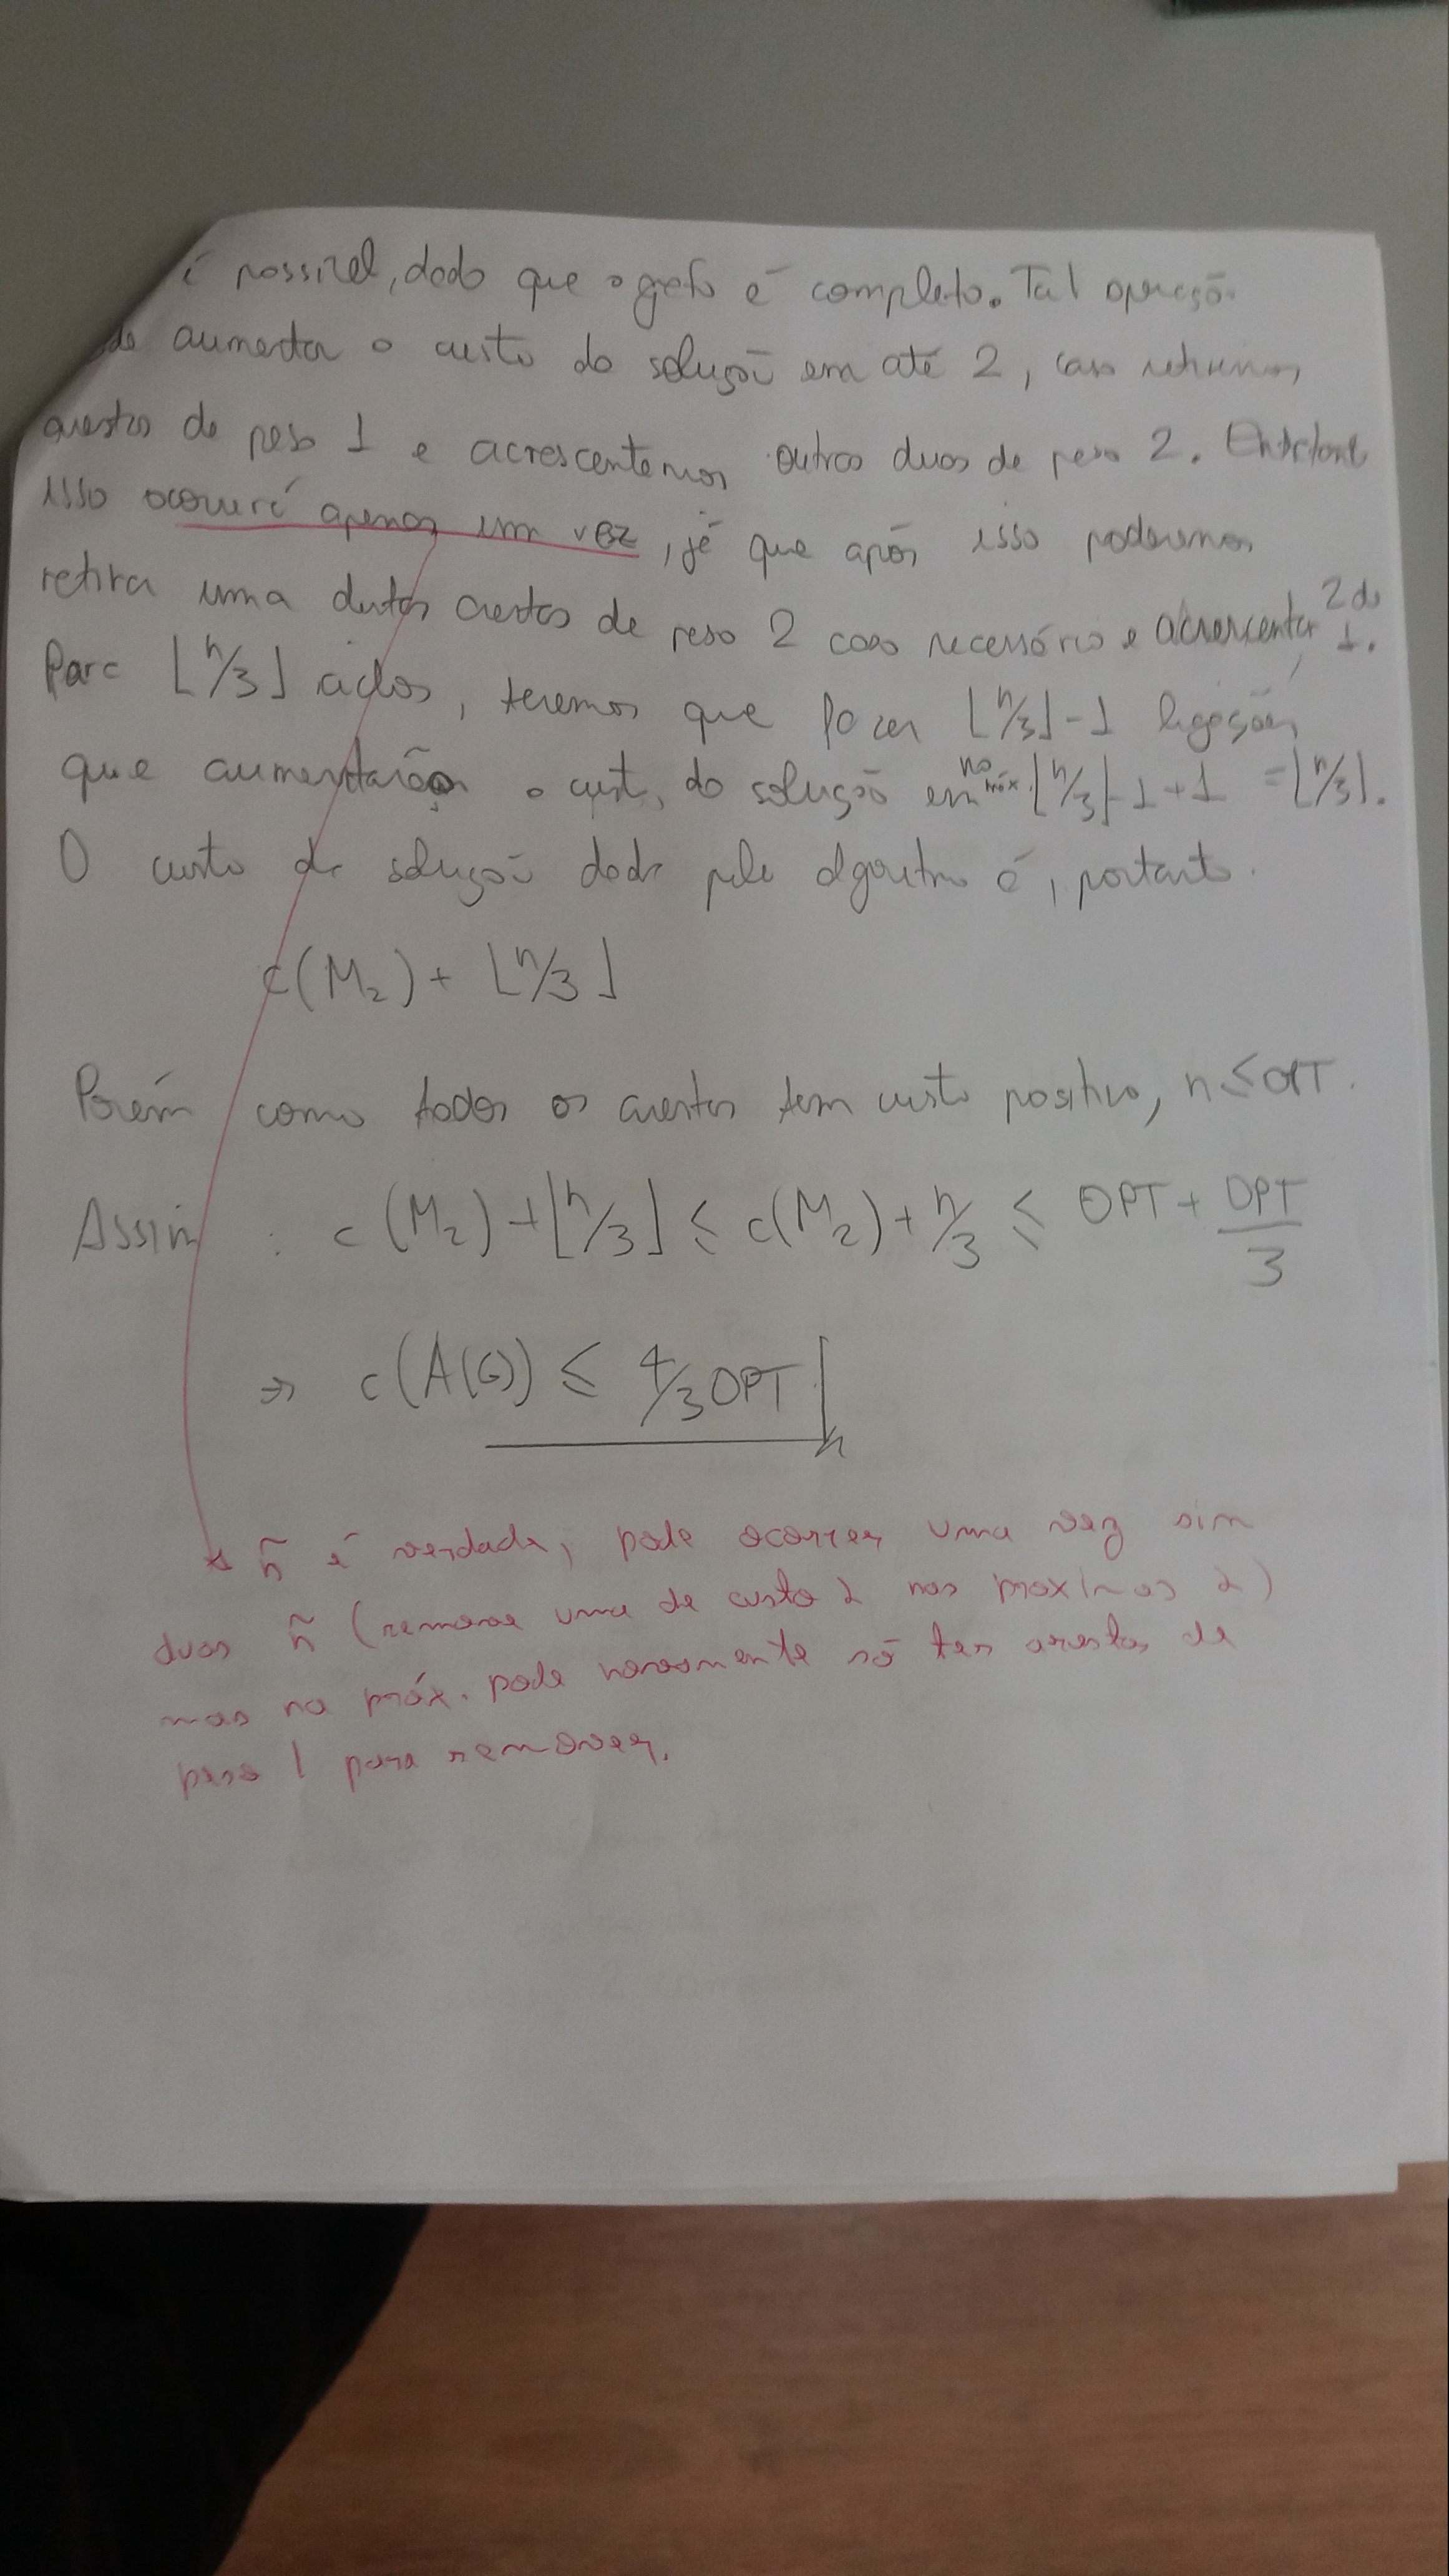 é possível, dado que o grafo é completo. Tal operação
de aumentar o custo da solução em até 2, caso retiremos
arestas de peso 1 e acrescentemos outras duas de peso 2. Entretanto
isso ocorrerá apenas um vez, já que após isso poderemos
retirar uma destas arestas de peso 2 caso necessário e acrescentar 2 de 1.
Para ⌊n/3⌋ ciclos, teremos que fazer ⌊n/3⌋-1 ligações,
que aumentarão o custo da solução em no máx. ⌊n/3⌋-1+1 = ⌊n/3⌋.
O custo da solução dada pelo algoritmo é, portanto.
c(M₂) + ⌊n/3⌋
Porém como todas as arestas tem custo positivo, n ≤ OPT.
Assim : c(M₂) + ⌊n/3⌋ ≤ c(M₂) + n/3 ≤ OPT + OPT/3
⇒ c(A(G)) ≤ 4/3 OPT
ñ é verdade, pode ocorrer uma vez sim
duas ñ (remove uma de custo 2 nas proximas 2)
mas na próx. pode novamente só ter arestas de
peso 1 para remover.